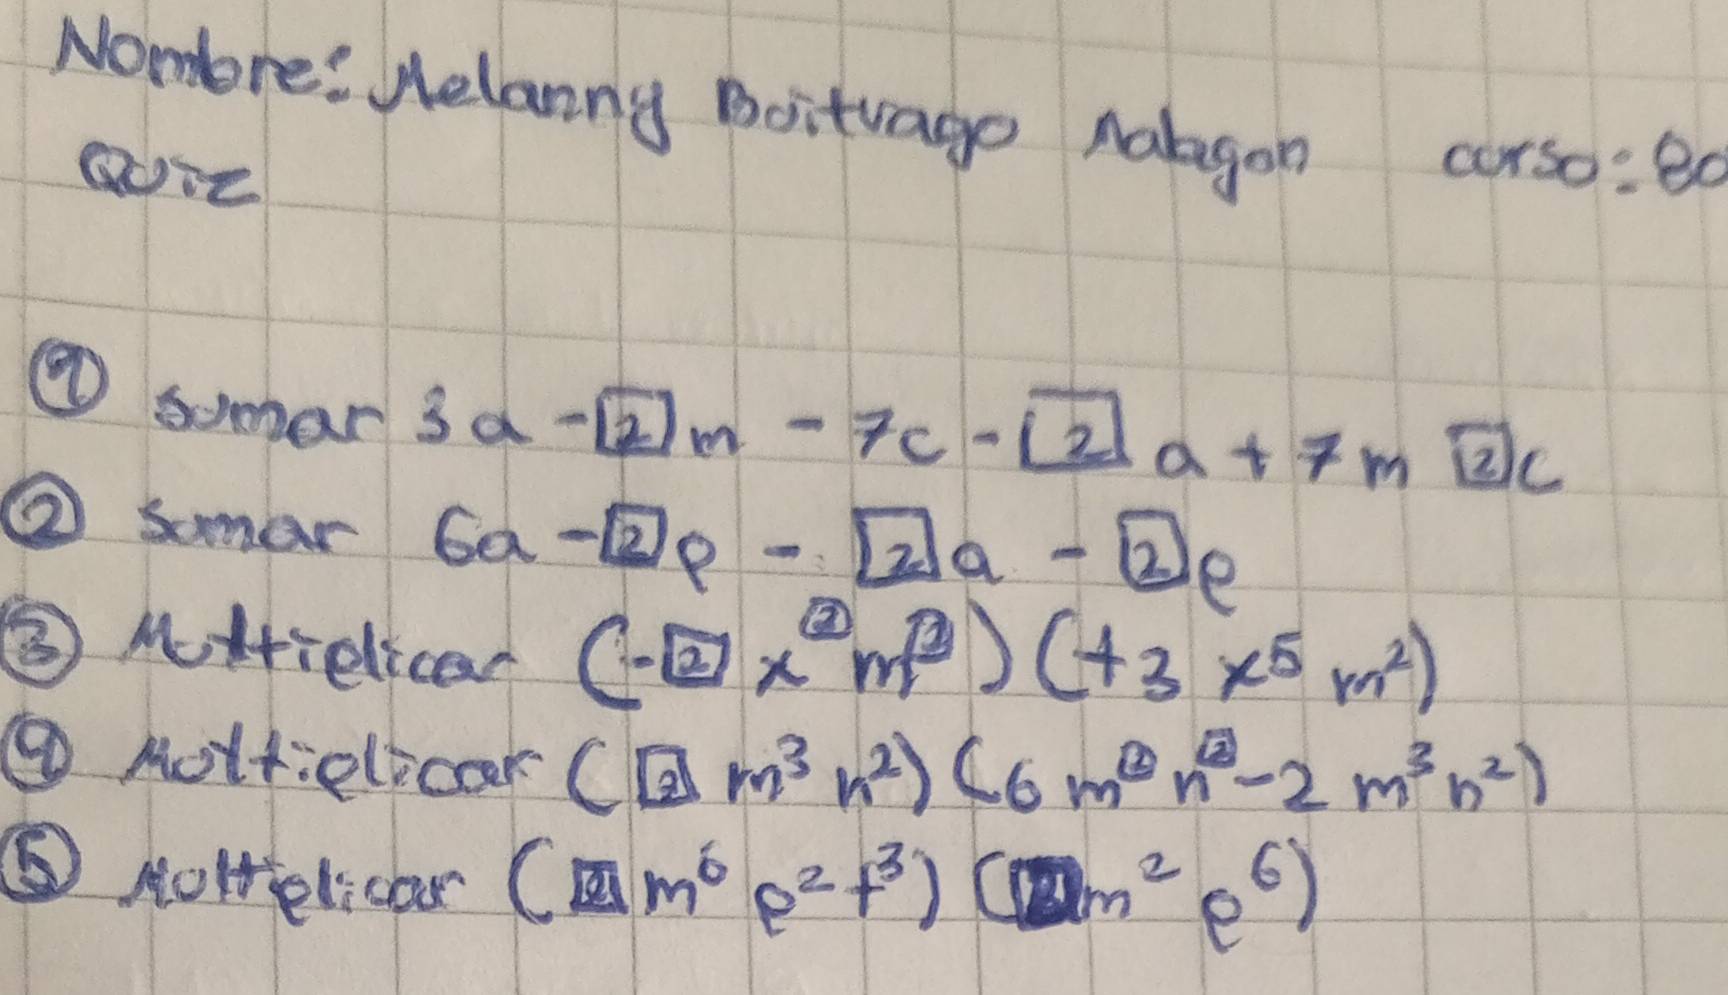 Nombre: Melanny Boitrago Nalagon curso: 80
QUIZ
① sumar 3a - [2]m - 7c - [2]a + 7m [2]c
② Sumar 6a - [2]p - [2]a - [2]p
③ Multiplicar (-[2] x^[2] m^[2]) (+3 x⁵ m²)
④ Moltiplicar ([2] m³ n²) (6 m^[2] n^[2] - 2 m³ n²)
⑤ Moltiplicar ([2] m⁶ p² t³) ([2] m² p⁶)